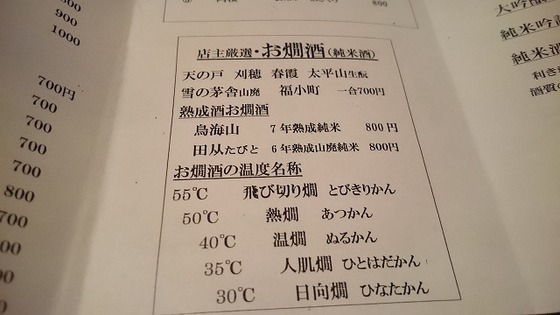 800
900
1000
700円
700
700
700
700
800
700
800
店主厳選・お燗酒(純米酒)
天の戸 刈穂 春霞 太平山生酛
雪の茅舎山廃 福小町 一合700円
熟成酒お燗酒
鳥海山 7年熟成純米 800円
田从たびと 6年熟成山廃純米 800円
お燗酒の温度名称
55℃ 飛び切り燗 とびきりかん
50℃ 熱燗 あつかん
40℃ 温燗 ぬるかん
35℃ 人肌燗 ひとはだかん
30℃ 日向燗 ひなたかん
大吟醸
純米吟
純米酒
利き
酒質の